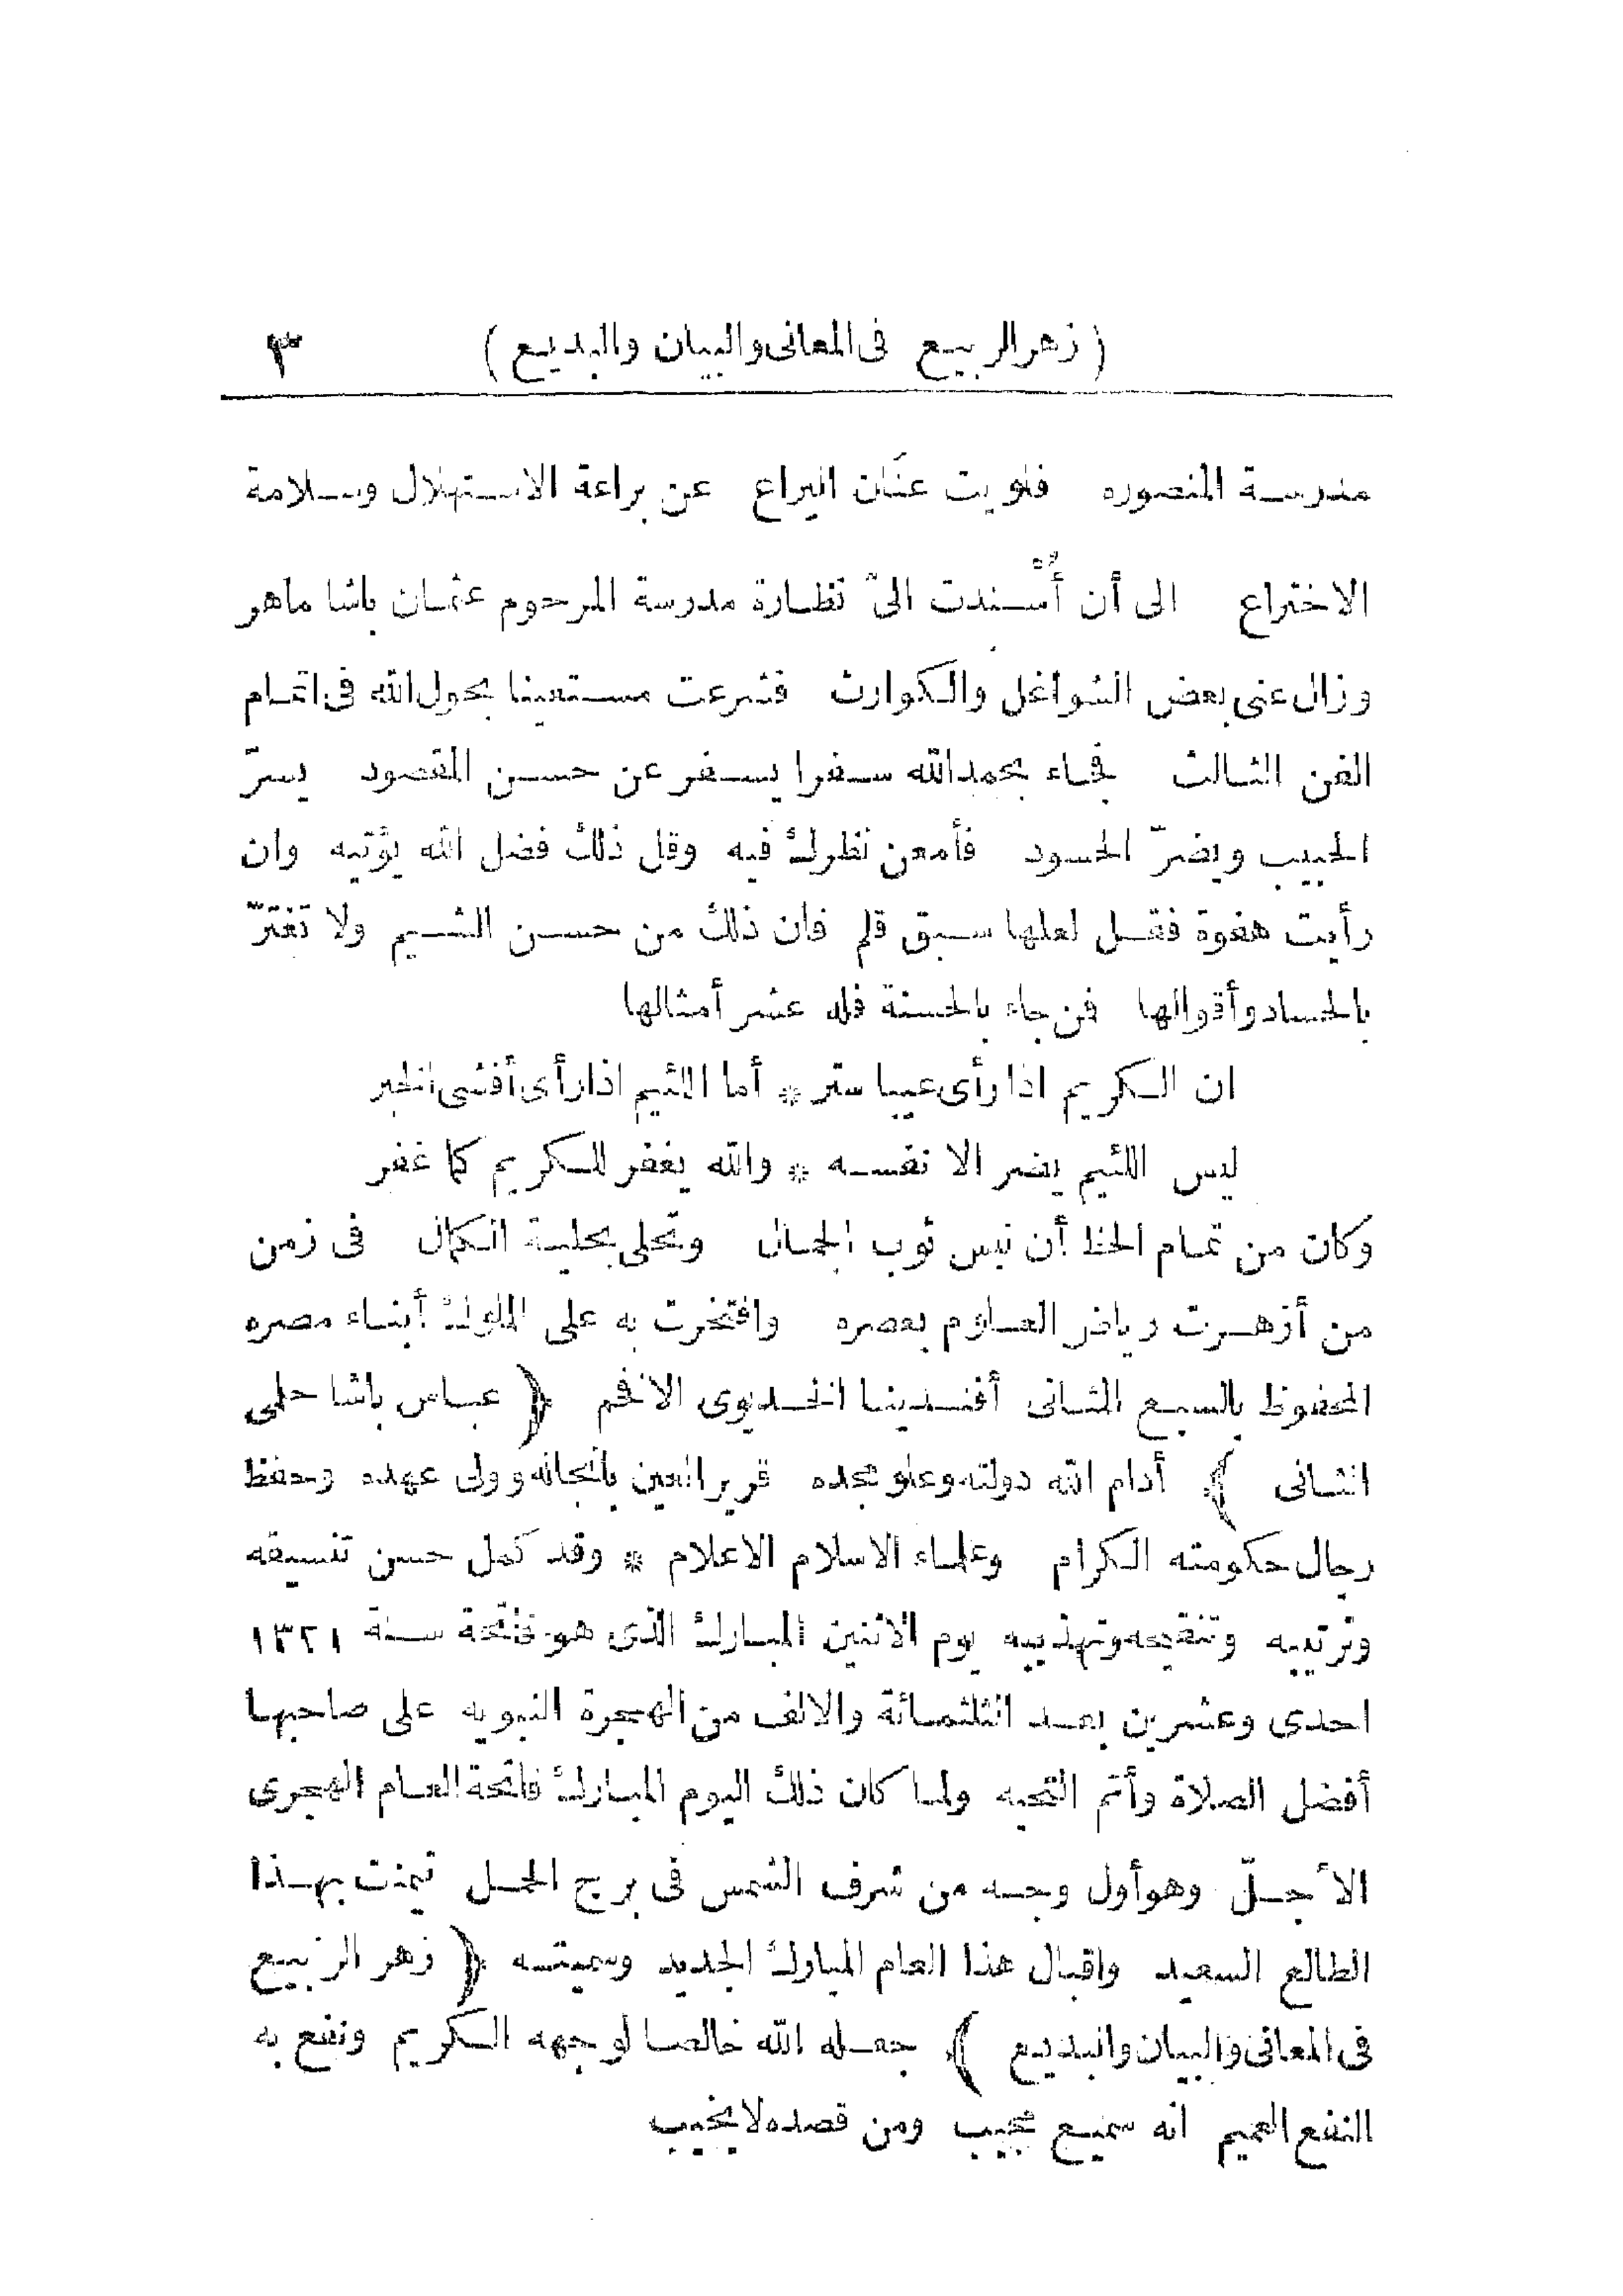 ( زهر الربيع فى المعانى والبيان والبديع ) ٣
مدرسة المنصوره فلويت عنَان اليراع عن براعة الاستهلال وسلامة
الاختراع الى أن أُسْندت الىّ نظارة مدرسة المرحوم عثمان باشا ماهر
وزال عنى بعض الشواغل والكوارث فشرعت مستعينا بحول الله فى اتمام
الفن الثالث فجاء بحمد الله سفرا يسفر عن حسن المقصود يسرّ
الحبيب ويضرّ الحسود فأمعن نظرك فيه وقل ذلك فضل الله يؤتيه وان
رأيت هفوة فقل لعلها سبق قلم فان ذلك من حسن الشيم ولا تغترّ
بالحساد وأقوالها فمن جاء بالحسنة فله عشر أمثالها
ان الكريم اذا رأى عيبا ستر * أما اللئيم اذا رأى أفشى الخبر
ليس اللئيم يضر الا نفسه * والله يغفر للكريم كما غفر
وكان من تمام الحظ أن لبس ثوب الجمال وتحلى بحلية الكمال فى زمن
من أزهرت رياض العلوم بعصره وافتخرت به على الملوك أبناء مصره
المحفوظ بالسبع المثانى أفندينا الخديوى الافخم ﴿ عباس باشا حلمى
الثانى ﴾ أدام الله دولته وعلو مجده قرير العين بأنجاله وولى عهده وحفظ
رجال حكومته الكرام وعلماء الاسلام الاعلام * وقد كمل حسن تنسيقه
وترتيبه وتنقيحه وتهذيبه يوم الاثنين المبارك الذى هو فاتحة سنة ١٣٢١
احدى وعشرين بعد الثلثمائة والالف من الهجرة النبويه على صاحبها
أفضل الصلاة وأتم التحيه ولما كان ذلك اليوم المبارك فاتحة العام الهجرى
الأجلّ وهو أول وجه من شرف الشمس فى برج الحمل تيمنت بهذا
الطالع السعيد واقبال هذا العام المبارك الجديد وسميته ﴿ زهر الربيع
فى المعانى والبيان والبديع ﴾ جعله الله خالصا لوجهه الكريم ونفع به
النفع العميم انه سميع مجيب ومن قصده لا يخيب